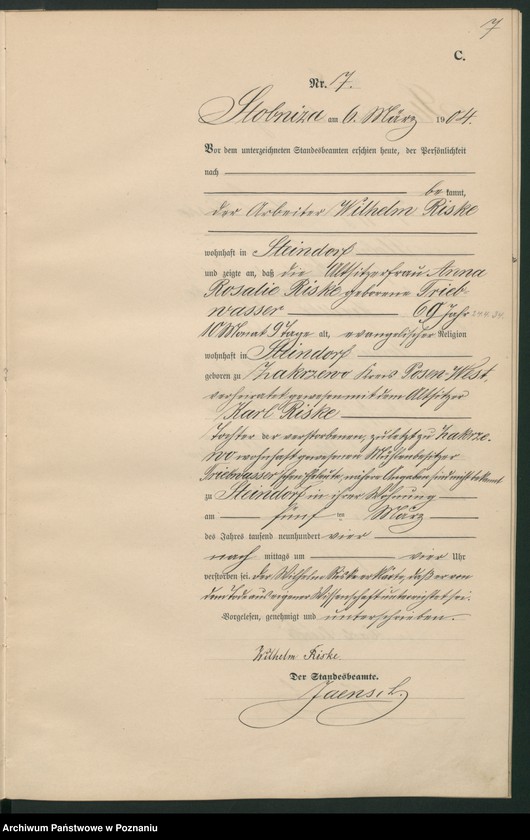 7
C.
Nr. 7.
Slobniza am 6. März 1904.
Vor dem unterzeichneten Standesbeamten erschien heute, der Persönlichkeit
nach
be kannt,
der Arbeiter Wilhelm Riske
wohnhaft in Steindorf
und zeigte an, daß die Altsitzerfrau Anna
Rosalie Riske geborene Trieb-
wasser 69 Jahr
10 Monat 9 Tage alt, evangelischer Religion
wohnhaft in Steindorf
geboren zu Zakrzewo Kreis Posen-West,
verheiratet gewesen mit dem Altsitzer
Karl Riske
Tochter der verstorbenen, zuletzt zu Zakrze-
wo wohnhaft gewesenen Mühlenbesitzer
Triebwasser'schen Eheleute, nähere Angaben sind nicht bekannt
zu Steindorf in ihrer Wohnung
am fünf ten März
des Jahres tausend neunhundert vier
nach mittags um vier Uhr
verstorben sei. Der Wilhelm Riske erklärte, daß er von
dem Tode aus eigener Wissenschaft unterrichtet sei.
Vorgelesen, genehmigt und unterschrieben.
Wilhelm Riske.
Der Standesbeamte.
Jaensch.
Archiwum Państwowe w Poznaniu